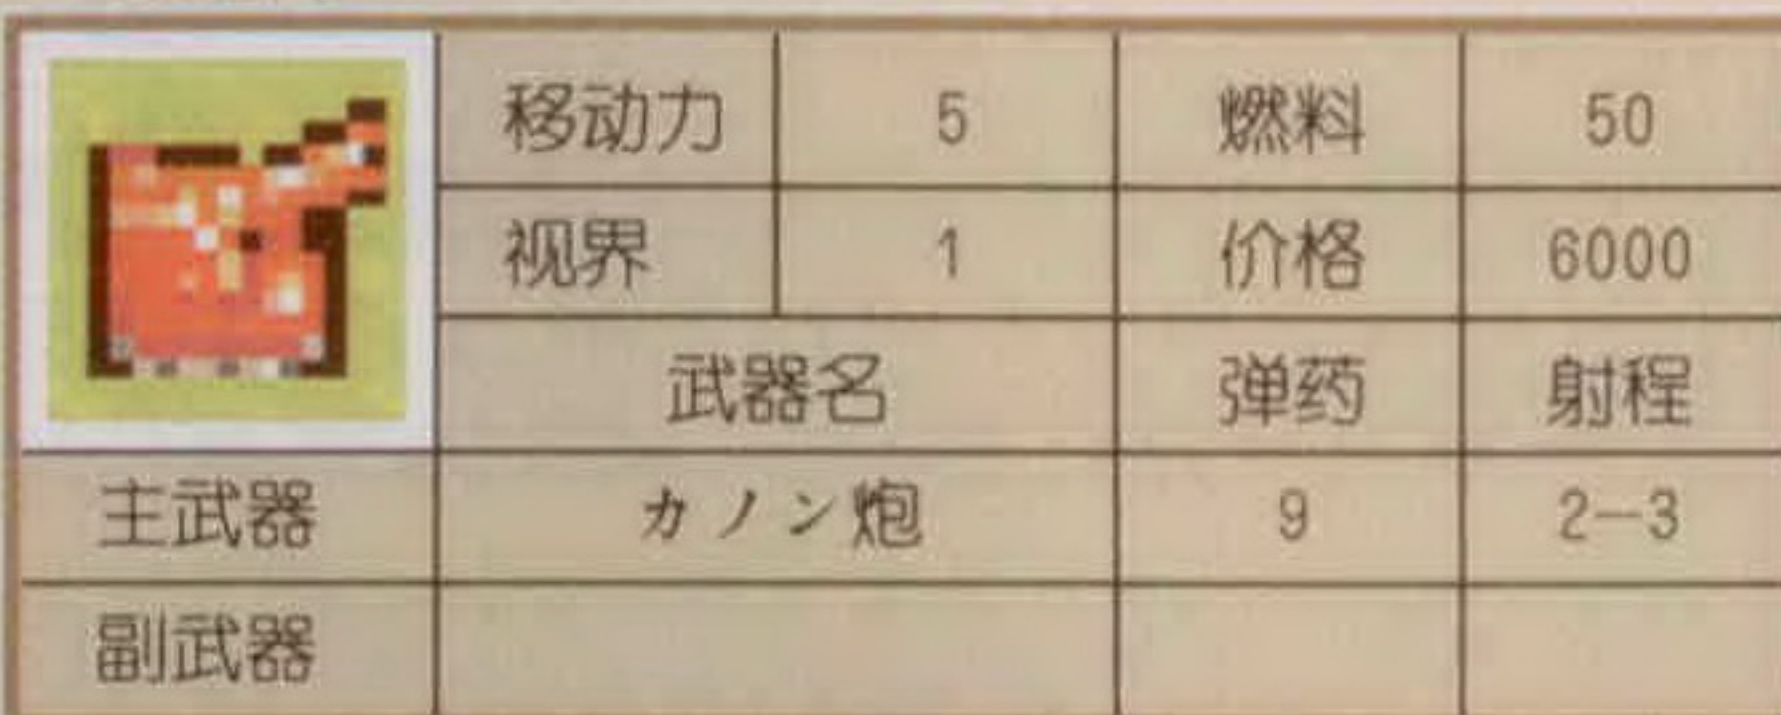 移动力 5 燃料 50
视界 1 价格 6000
武器名 弹药 射程
主武器 カノン炮 9 2—3
副武器